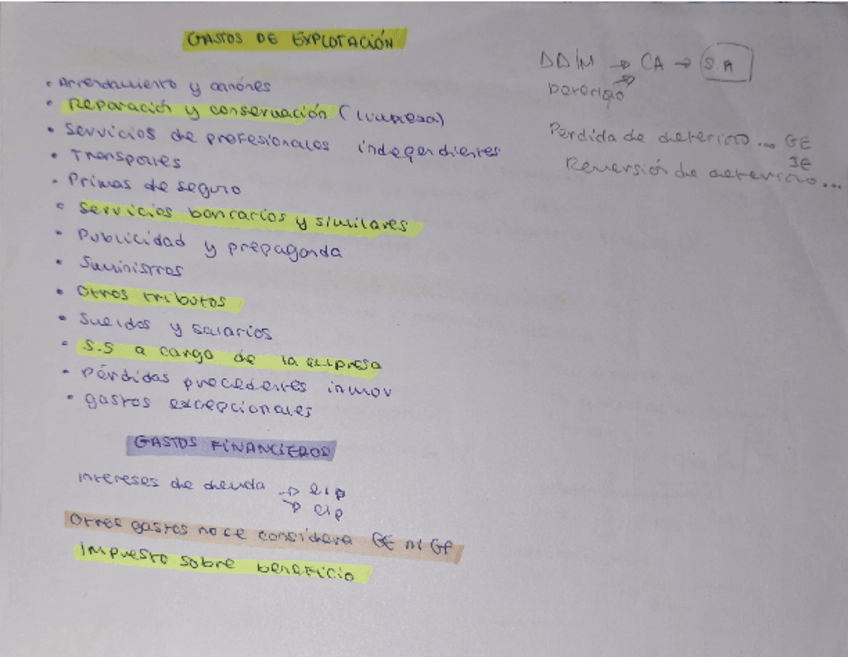 GASTOS DE EXPLOTACIÓN
• Arrendamiento y cánones
• Reparación y conservación (limpieza)
• Servicios de profesionales independientes
• Transportes
• Primas de seguro
• Servicios bancarios y similares
• Publicidad y propaganda
• Suministros
• Otros tributos
• Sueldos y salarios
• S.S a cargo de la empresa
• Pérdidas procedentes inmov
• gastos excepcionales
GASTOS FINANCIEROS
Intereses de deuda → elp
→ clp
Otros gastos no se considera GE ni GF
Impuesto sobre beneficio
→ CA → S.A
Pérdida de deterioro... GE
IE
Reversión de deterioro...